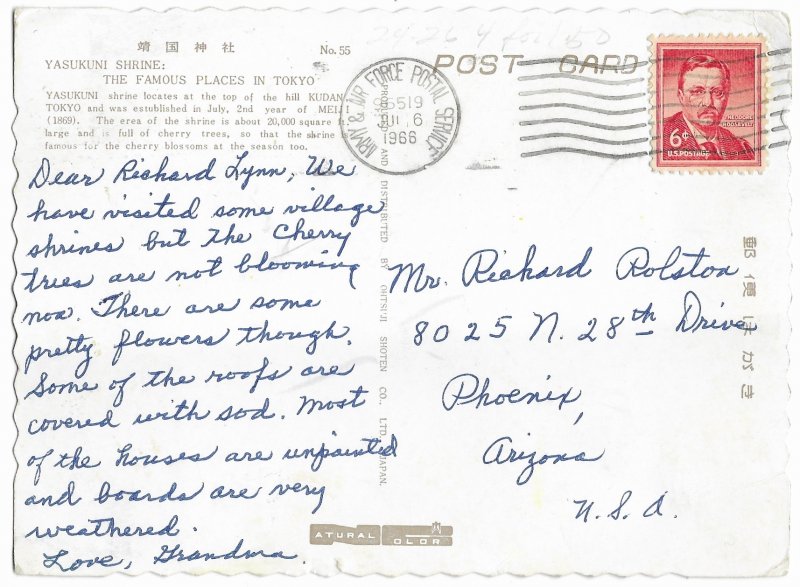 靖国神社 No. 55
YASUKUNI SHRINE:
THE FAMOUS PLACES IN TOKYO
YASUKUNI shrine locates at the top of the hill KUDAN
TOKYO and was estublished in July, 2nd year of MEIJI
(1869). The erea of the shrine is about 20,000 square
large and is full of cherry trees, so that the shrine is
famous for the cherry blossoms at the season too.
POST CARD
ARMY & AIR FORCE POSTAL SERVICE
96519
JUL 6
1966
THEODORE ROOSEVELT
6¢
U.S. POSTAGE
Dear Richard Lynn, We
have visited some village
shrines but the Cherry
trees are not blooming
now. There are some
pretty flowers though.
Some of the roofs are
covered with sod. Most
of the houses are unpainted
and boards are very
weathered.
Love, Grandma.
AND DISTRIBUTED BY OHTSUJI SHOTEN CO., LTD. JAPAN.
Mr. Richard Rolston
8025 N. 28th Drive
Phoenix,
Arizona
U.S.A.
郵便はがき
NATURAL COLOR